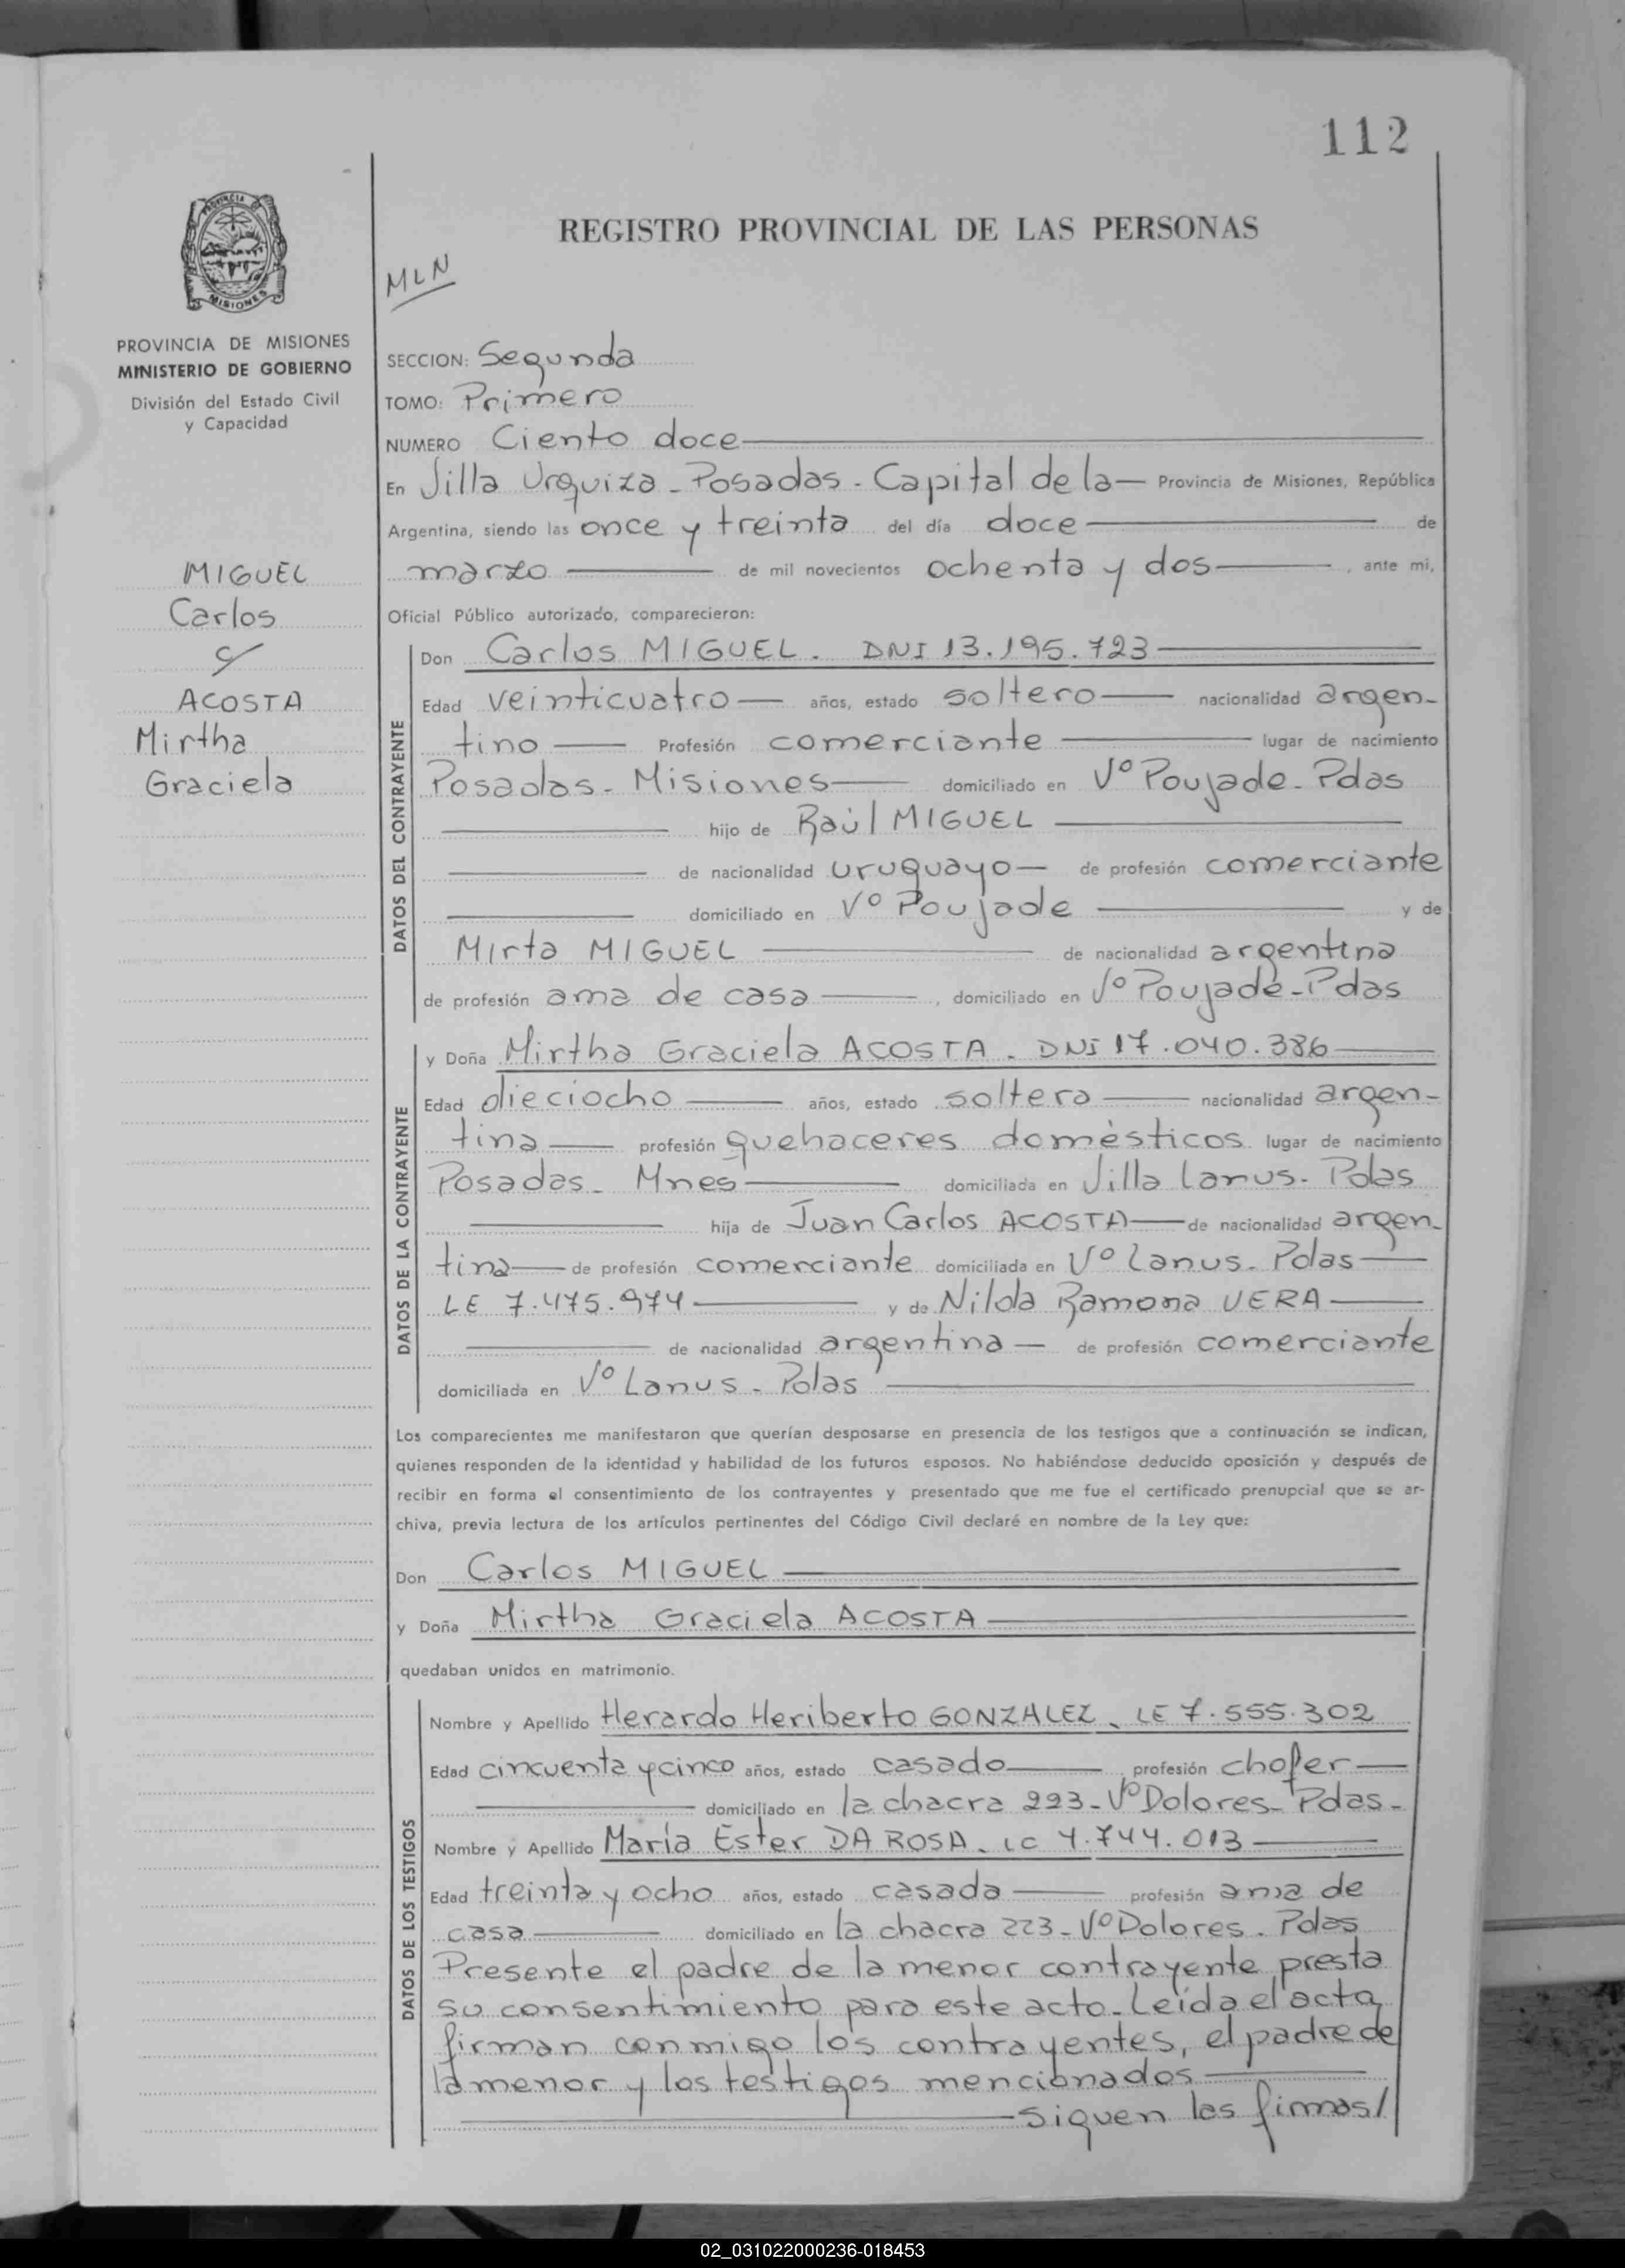 112
REGISTRO PROVINCIAL DE LAS PERSONAS
MLN
PROVINCIA DE MISIONES
MINISTERIO DE GOBIERNO
División del Estado Civil
y Capacidad
MIGUEL
Carlos
c/
ACOSTA
Mirtha
Graciela
SECCION: Segunda
TOMO: Primero
NUMERO Ciento doce
En Villa Urquiza - Posadas - Capital de la Provincia de Misiones, República
Argentina, siendo las once y treinta del día doce de
marzo de mil novecientos ochenta y dos, ante mi,
Oficial Público autorizado, comparecieron:
DATOS DEL CONTRAYENTE
Don Carlos MIGUEL. DNI 13.195.723
Edad veinticuatro años, estado soltero nacionalidad argen-
tino Profesión comerciante lugar de nacimiento
Posadas - Misiones domiciliado en Vº Poujade - Pdas
hijo de Raúl MIGUEL
de nacionalidad uruguayo de profesión comerciante
domiciliado en Vº Poujade y de
Mirta MIGUEL de nacionalidad argentina
de profesión ama de casa, domiciliado en Vº Poujade - Pdas
DATOS DE LA CONTRAYENTE
y Doña Mirtha Graciela ACOSTA. DNI 17.040.386
Edad dieciocho años, estado soltera nacionalidad argen-
tina profesión quehaceres domésticos lugar de nacimiento
Posadas - Mnes domiciliada en Villa Lanus - Pdas
hija de Juan Carlos ACOSTA de nacionalidad argen-
tina de profesión comerciante domiciliada en Vº Lanus - Pdas
LE 7.475.974 y de Nilda Ramona VERA
de nacionalidad argentina de profesión comerciante
domiciliada en Vº Lanus - Pdas
Los comparecientes me manifestaron que querían desposarse en presencia de los testigos que a continuación se indican,
quienes responden de la identidad y habilidad de los futuros esposos. No habiéndose deducido oposición y después de
recibir en forma el consentimiento de los contrayentes y presentado que me fue el certificado prenupcial que se ar-
chiva, previa lectura de los artículos pertinentes del Código Civil declaré en nombre de la Ley que:
Don Carlos MIGUEL
y Doña Mirtha Graciela ACOSTA
quedaban unidos en matrimonio.
DATOS DE LOS TESTIGOS
Nombre y Apellido Herardo Heriberto GONZALEZ. LE 7.555.302
Edad cincuenta y cinco años, estado casado profesión chofer
domiciliado en la chacra 223 - Vº Dolores - Pdas -
Nombre y Apellido María Ester DA ROSA. LC 4.744.013
Edad treinta y ocho años, estado casada profesión ama de
casa domiciliado en la chacra 223 - Vº Dolores - Pdas
Presente el padre de la menor contrayente, presta
su consentimiento para este acto. Leída el acta,
firman conmigo los contrayentes, el padre de
la menor y los testigos mencionados
siguen las firmas/
02_031022000236-018453